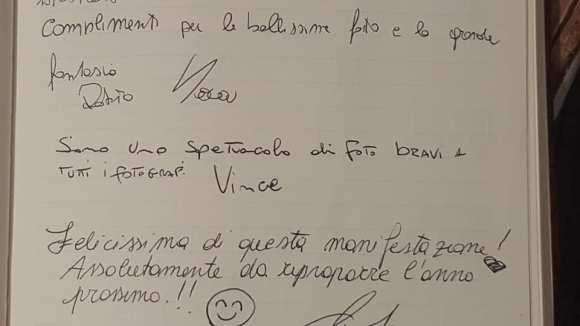 Complimenti per le bellissime foto e la grande
fantasia
Sono uno spettacolo di foto BRAVI A
TUTTI i fotografi
Vince
Felicissima di questa manifestazione!
Assolutamente da riproporre l'anno
prossimo.!!